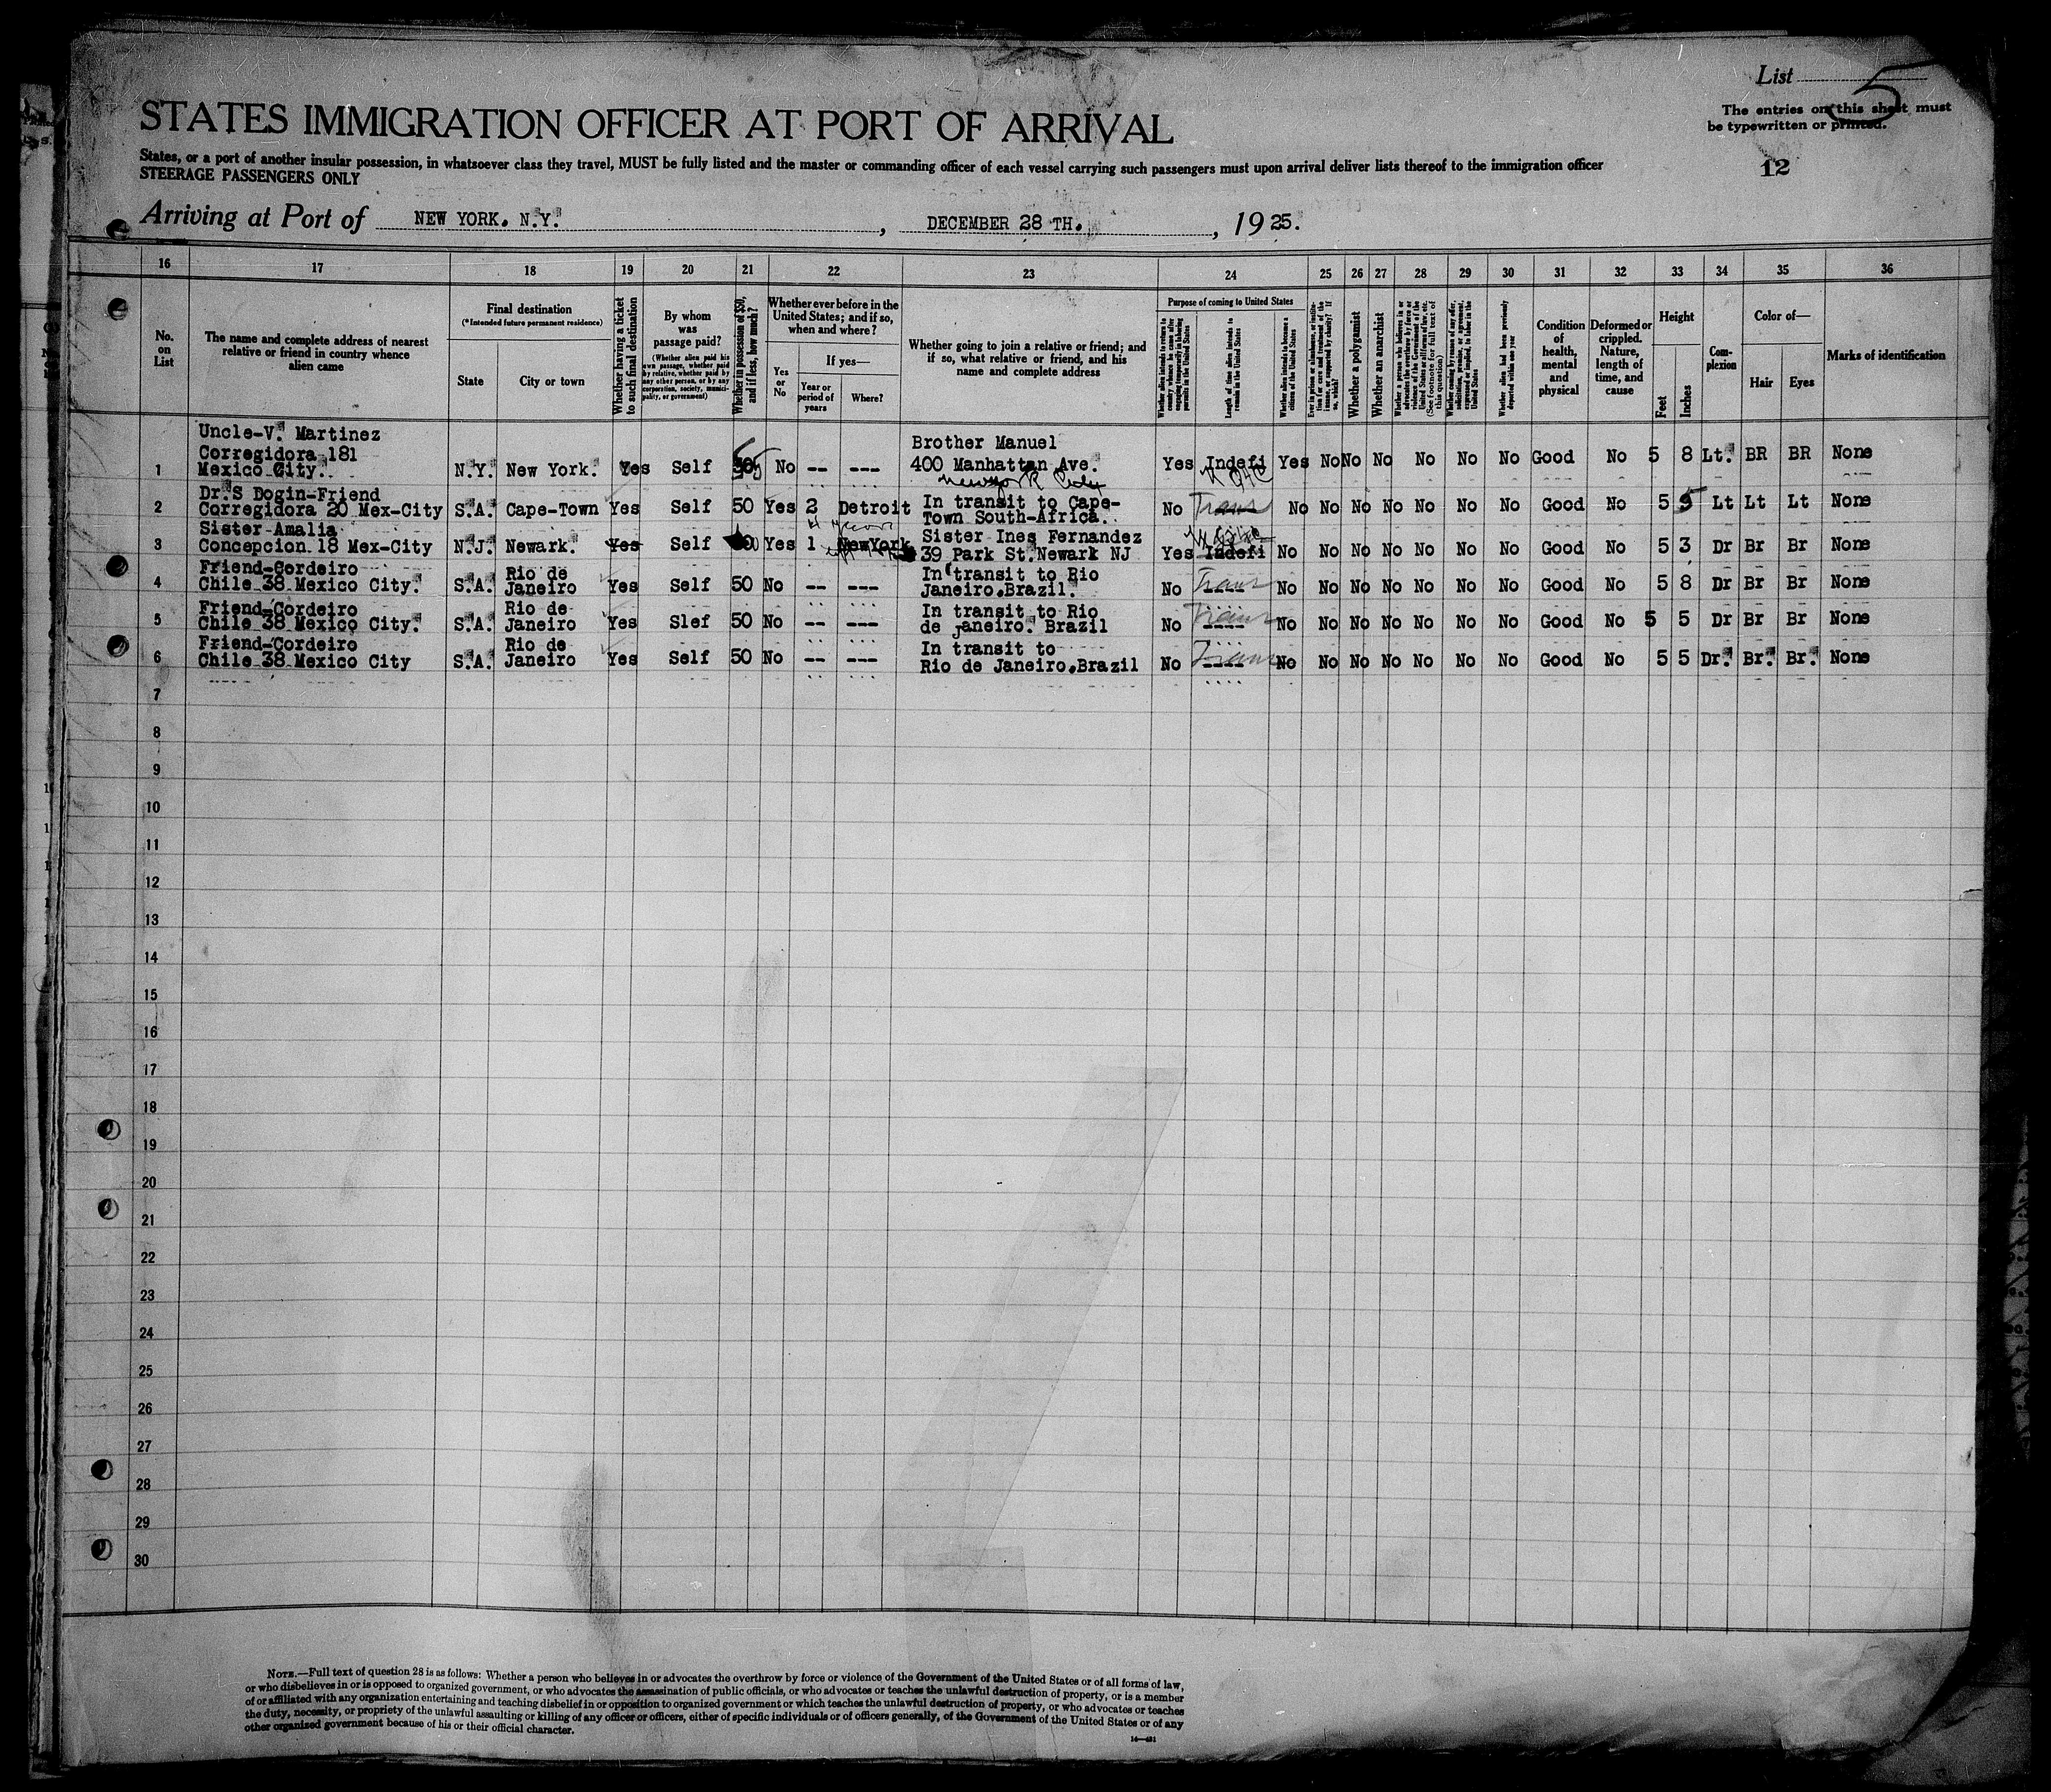 List
5
The entries on this sheet must
be typewritten or printed.
12
STATES IMMIGRATION OFFICER AT PORT OF ARRIVAL
States, or a port of another insular possession, in whatsoever class they travel, MUST be fully listed and the master or commanding officer of each vessel carrying such passengers must upon arrival deliver lists thereof to the immigration officer
STEERAGE PASSENGERS ONLY
Arriving at Port of NEW YORK. N.Y. , DECEMBER 28 TH. , 19 25.
16 17 18 19 20 21 22 23 24 25 26 27 28 29 30 31 32 33 34 35 36
No. on List
The name and complete address of nearest relative or friend in country whence alien came
Final destination
(*Intended future permanent residence)
State
City or town
Whether having a ticket to such final destination
By whom was passage paid?
(Whether alien paid his own passage, whether paid by relative, whether paid by any other person, or by any corporation, society, municipality, or government)
Whether in possession of $50, and if less, how much?
Whether ever before in the United States; and if so, when and where?
Yes or No
If yes—
Year or period of years
Where?
Whether going to join a relative or friend; and if so, what relative or friend, and his name and complete address
Purpose of coming to United States
Whether alien intends to return to country whence he came after engaging temporarily in laboring pursuits in the United States
Length of time alien intends to remain in the United States
Whether alien intends to become a citizen of the United States
Ever in prison or almshouse, or institution for care and treatment of the insane, or supported by charity? If so, which?
Whether a polygamist
Whether an anarchist
Whether a person who believes in or advocates the overthrow by force or violence of the Government of the United States or all forms of law, etc. (See footnote for full text of this question)
Whether coming by reason of any offer, solicitation, promise, or agreement, expressed or implied, to labor in the United States
Whether alien had been previously deported within one year
Condition of health, mental and physical
Deformed or crippled. Nature, length of time, and cause
Height
Feet
Inches
Complexion
Color of—
Hair
Eyes
Marks of identification
Uncle-V. Martinez Brother Manuel
Corregidora 181
1 Mexico City. N.Y. New York. Yes Self No -- --- 400 Manhattan Ave. Yes Indefi Yes No No No No No No Good No 5 8 Lt. BR BR None
New York City
Dr.S Dogin-Friend In transit to Cape-
2 Corregidora 20 Mex-City S.A. Cape-Town Yes Self 50 Yes 2 Detroit Town South-Africa. No Trans No No No No No No No Good No 5 5 Lt Lt Lt None
Sister Amalia Sister Ines Fernandez
3 Concepcion 18 Mex-City N.J. Newark. Yes Self Yes 1 NewYork 39 Park St.Newark NJ Yes Indefi No No No No No No No Good No 5 3 Dr Br Br None
Friend-Cordeiro Rio de In transit to Rio
4 Chile 38 Mexico City. S.A. Janeiro Yes Self 50 No -- --- Janeiro.Brazil. No Trans No No No No No No No Good No 5 8 Dr Br Br None
Friend-Cordeiro Rio de In transit to Rio
5 Chile 38 Mexico City. S.A. Janeiro Yes Slef 50 No -- --- de janeiro. Brazil No Trans No No No No No No No Good No 5 5 Dr Br Br None
Friend-Cordeiro Rio de In transit to
6 Chile 38 Mexico City S.A. Janeiro Yes Self 50 No -- --- Rio de Janeiro.Brazil No Trans No No No No No No No Good No 5 5 Dr. Br. Br. None
7
8
9
10
11
12
13
14
15
16
17
18
19
20
21
22
23
24
25
26
27
28
29
30
NOTE.—Full text of question 28 is as follows: Whether a person who believes in or advocates the overthrow by force or violence of the Government of the United States or of all forms of law,
or who disbelieves in or is opposed to organized government, or who advocates the assassination of public officials, or who advocates or teaches the unlawful destruction of property, or is a member
of or affiliated with any organization entertaining and teaching disbelief in or opposition to organized government or which teaches the unlawful destruction of property, or who advocates or teaches
the duty, necessity, or propriety of the unlawful assaulting or killing of any officer or officers, either of specific individuals or of officers generally, of the Government of the United States or of any
other organized government because of his or their official character.